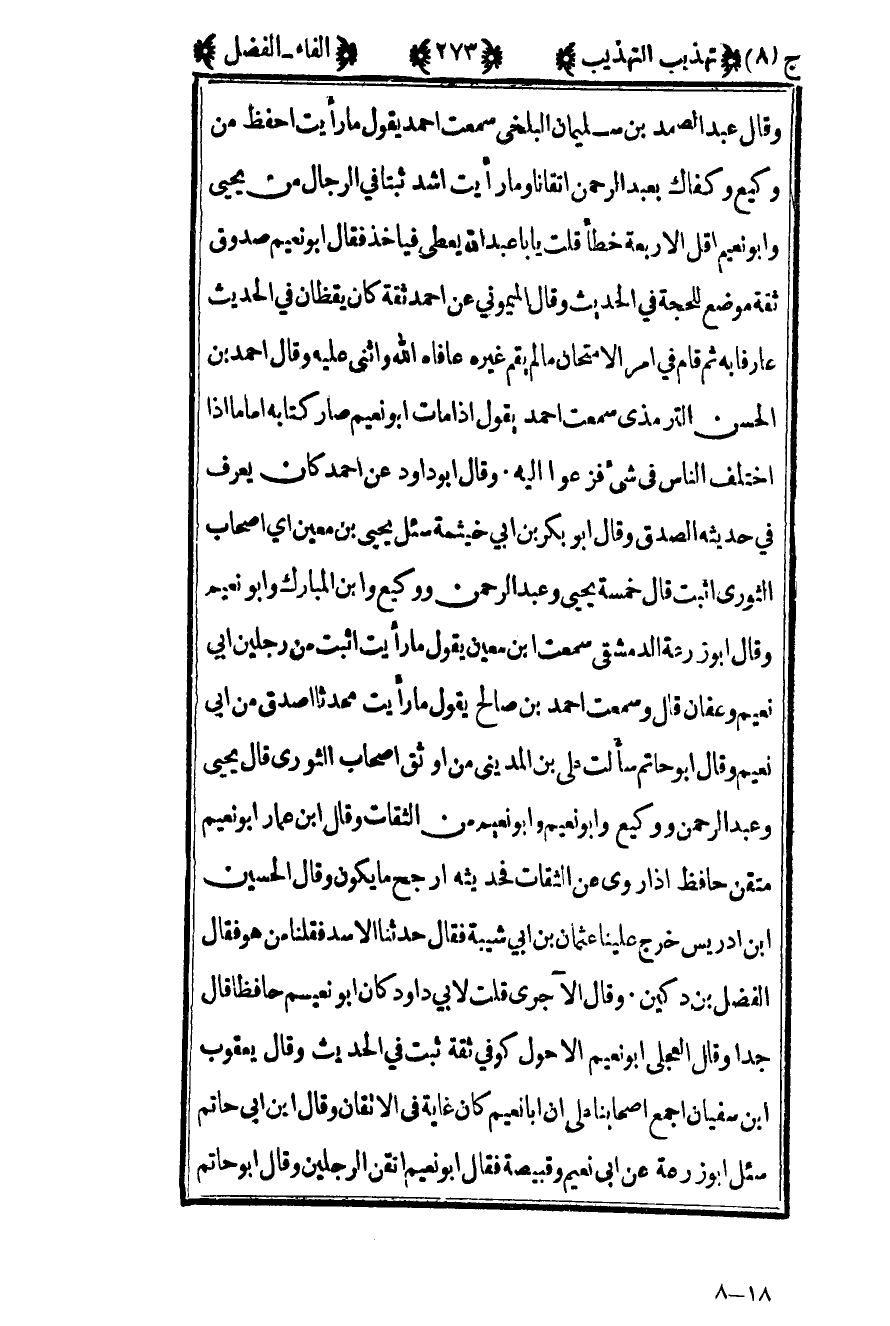 ج (٨) تهذيب التهذيب ٢٧٣ الفاء-الفضل
وقال عبد الصمد بن سليمان البلخى سمعت احمد يقول ما رأيت احفظ من
وكيع وكفاك بعبد الرحمن اتقانا وما رأيت اشد ثبتا في الرجال من يحيى
وابو نعيم اقل الاربعة خطأ قلت يا با عبد الله يعطى فياخذ فقال ابو نعيم صدوق
ثقة موضع للحجة في الحديث وقال الميموني عن احمد ثقة كان يقظان في الحديث
عارفا به ثم قام في امر الامتحان مالم يقم غيره عافاه الله واثنى عليه وقال احمد بن
الحسن الترمذى سمعت احمد يقول اذا مات ابو نعيم صار كتابه اماما اذا
اختلف الناس فى شىء فزعوا اليه · وقال ابو داود عن احمد كان يعرف
في حديثه الصدق وقال ابو بكر بن ابي خيثمة سئل يحيى بن معين اي اصحاب
الثورى اثبت قال خمسة يحيى وعبد الرحمن ووكيع وابن المبارك وابو نعيم
وقال ابو زرعة الدمشقى سمعت ابن معين يقول ما رأيت اثبت من رجلين ابي
نعيم وعفان قال وسمعت احمد بن صالح يقول ما رأيت محدثا اصدق من ابي
نعيم وقال ابو حاتم سألت على بن المدينى من اوثق اصحاب الثورى قال يحيى
وعبد الرحمن ووكيع وابو نعيم وابو نعيم من الثقات وقال ابن عمار ابو نعيم
متقن حافظ اذا روى عن الثقات فحديثه ارجح ما يكون وقال الحسين
ابن ادريس خرج علينا عثمان بن ابي شيبة فقال حدثنا الاسد فقلنا من هو فقال
الفضل بن دكين · وقال الآجرى قلت لابي داود كان ابو نعيم حافظا قال
جدا وقال العجلى ابو نعيم الاحول كوفي ثقة ثبت في الحديث وقال يعقوب
ابن سفيان اجمع اصحابنا على ان ابا نعيم كان غاية فى الاتقان وقال ابن ابي حاتم
سئل ابو زرعة عن ابى نعيم وقبيصة فقال ابو نعيم اتقن الرجلين وقال ابو حاتم
٨—١٨